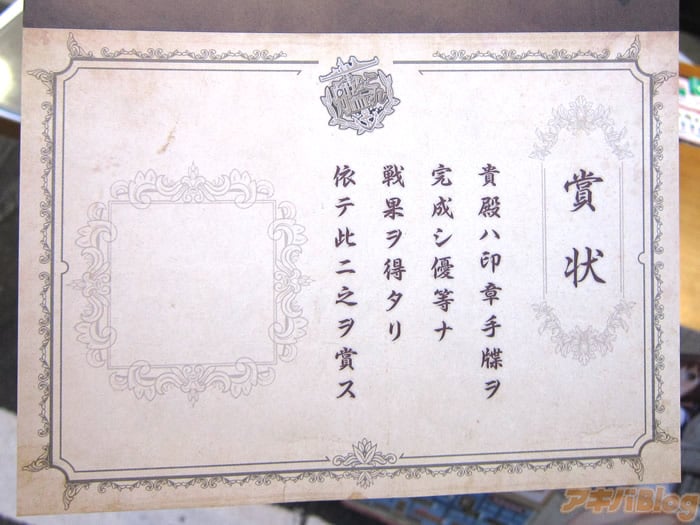 賞状
貴殿ハ印章手牒ヲ
完成シ優等ナ
戦果ヲ得タリ
依テ此ニ之ヲ賞ス
アキバBlog